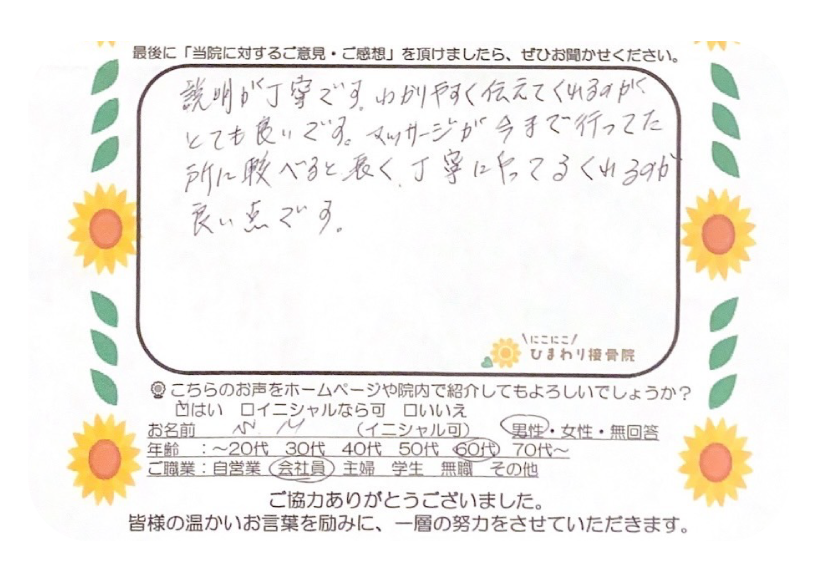 最後に「当院に対するご意見・ご感想」を頂けましたら、ぜひお聞かせください。
説明が丁寧です。わかりやすく伝えてくれるのが
とても良いです。マッサージが今まで行ってた
所に較べると長く、丁寧にやってるくれるのが
良い点です。
\にこにこ/
ひまわり接骨院
こちらのお声をホームページや院内で紹介してもよろしいでしょうか?
☑はい □イニシャルなら可 □いいえ
お名前 (イニシャル可) 男性・女性・無回答
年齢 :~20代 30代 40代 50代 60代 70代~
ご職業:自営業 会社員 主婦 学生 無職 その他
ご協力ありがとうございました。
皆様の温かいお言葉を励みに、一層の努力をさせていただきます。